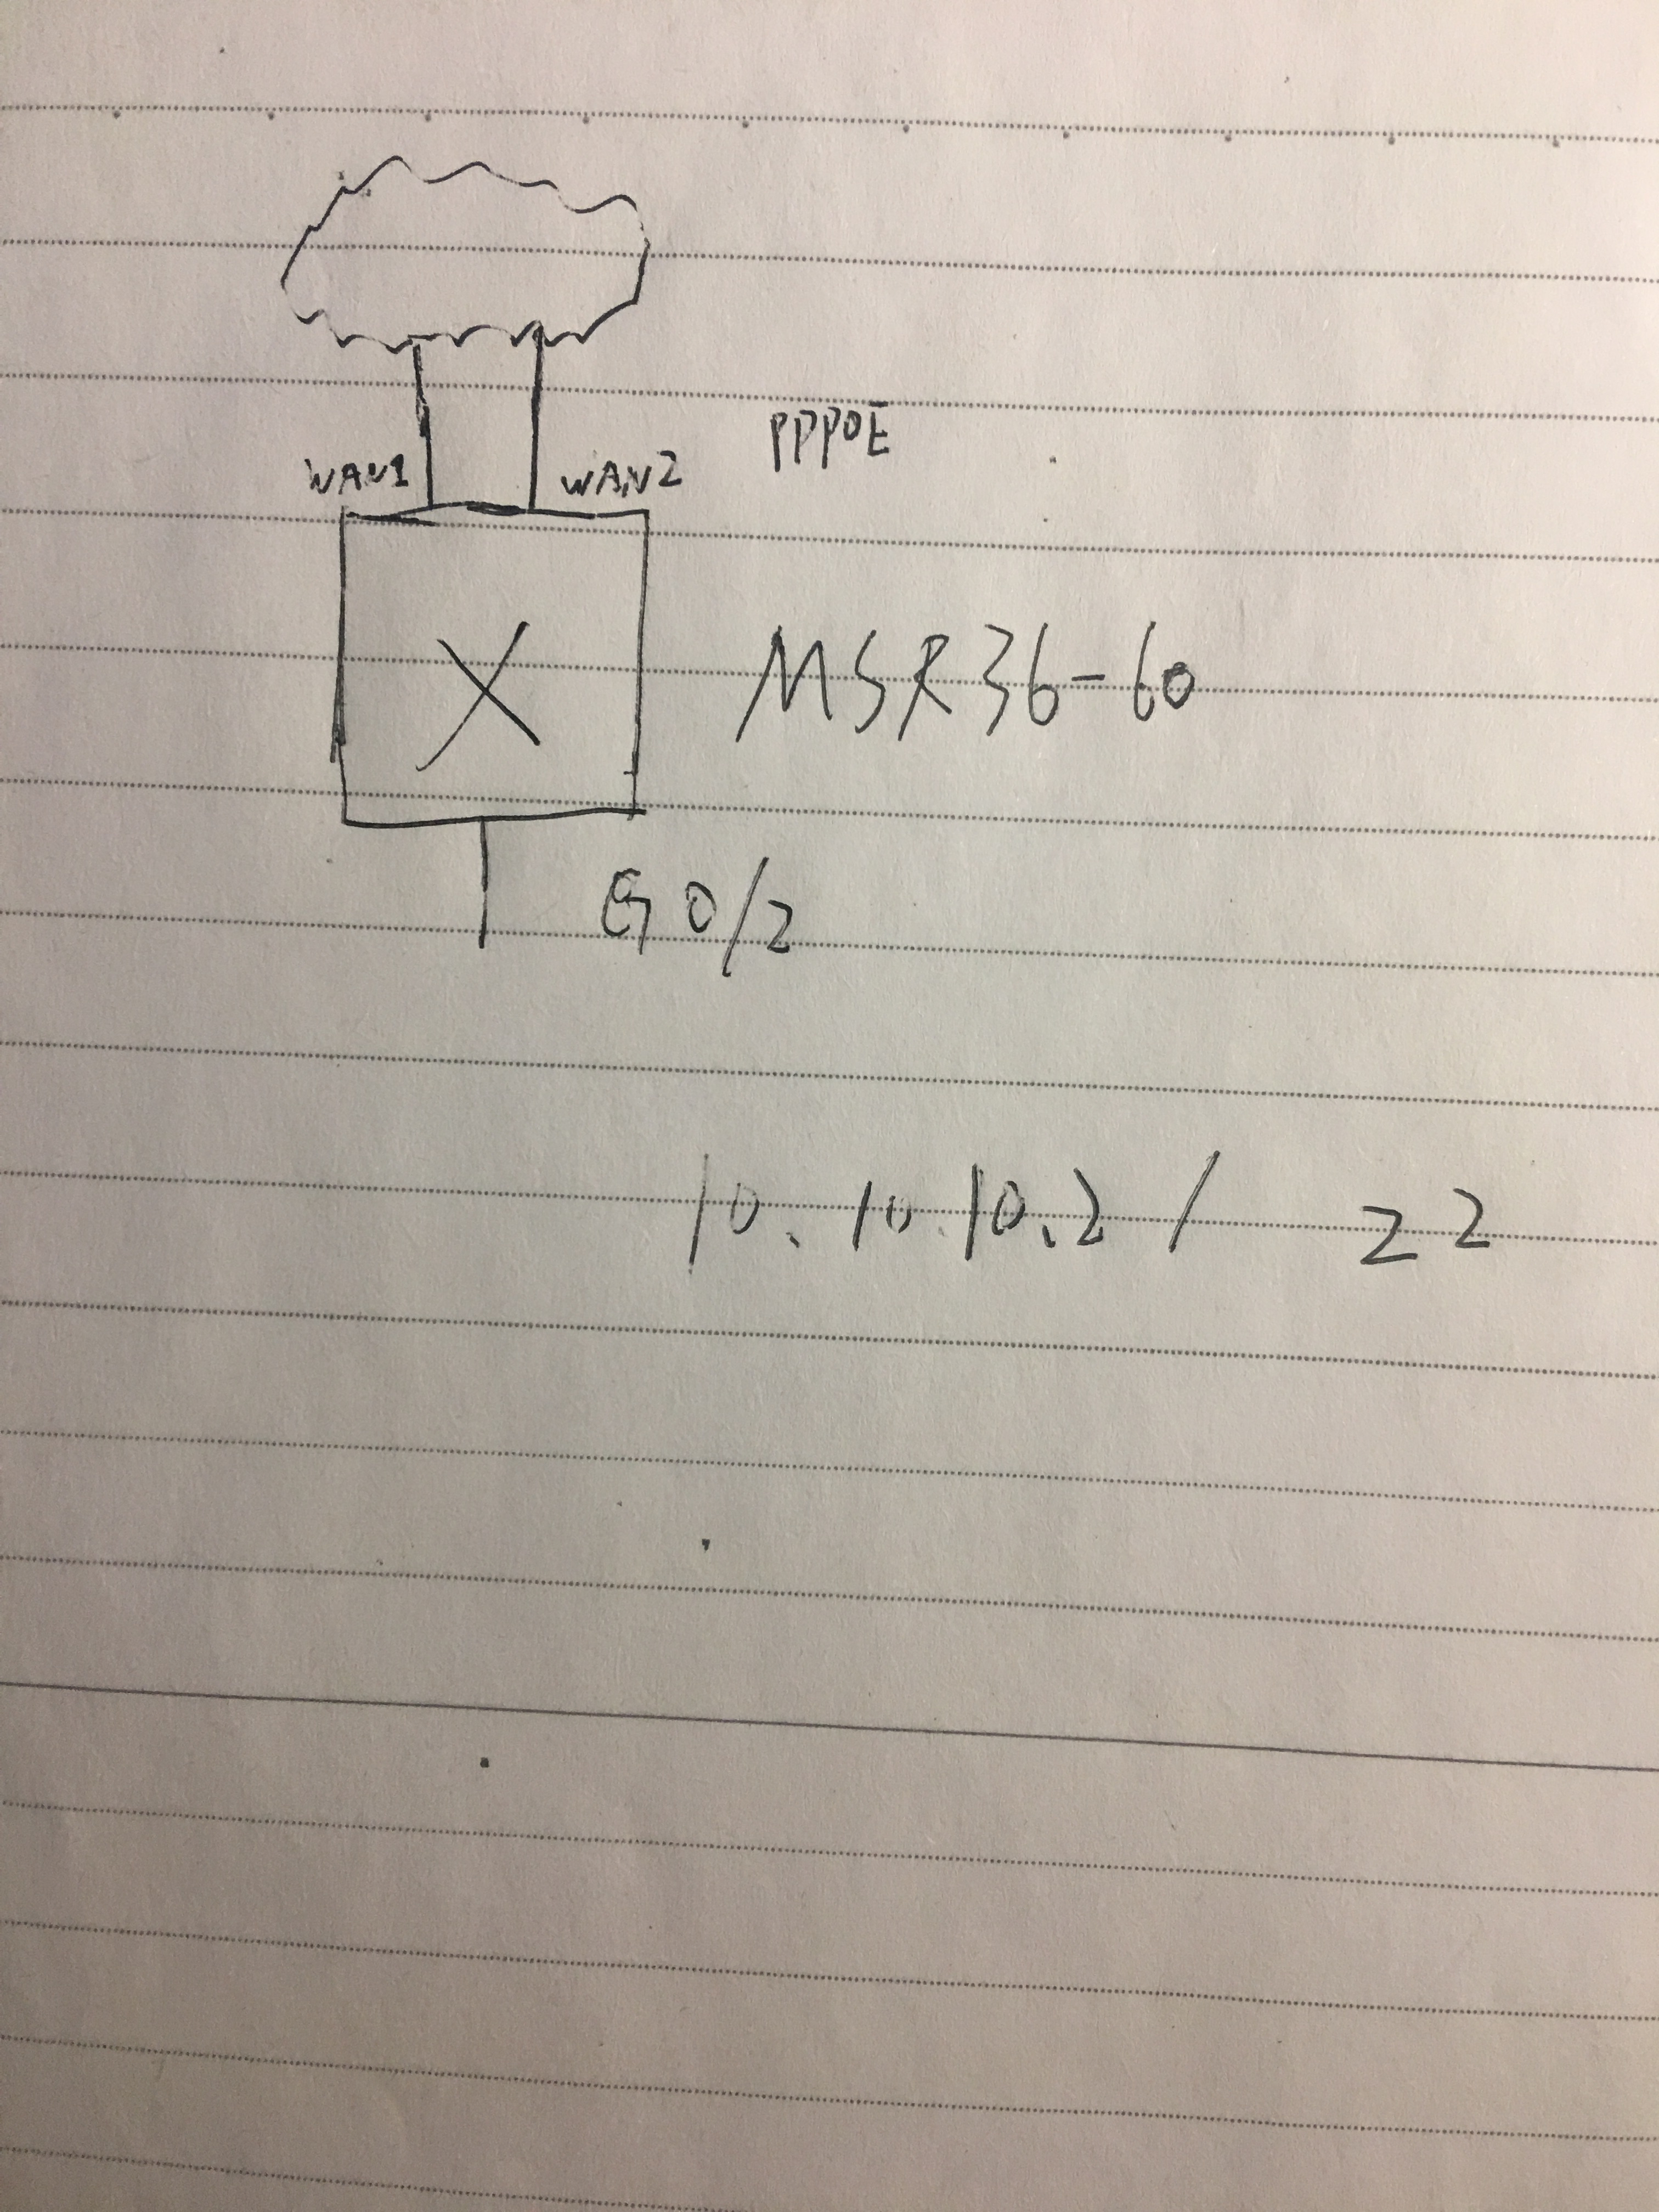 PPPOE
WAN1 WAN2
MSR36-60
G0/2
10.10.10.2/ 22